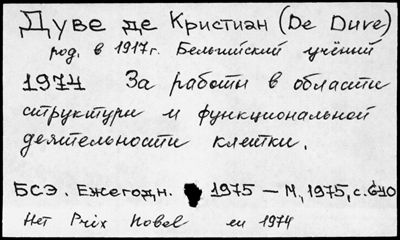 Дуве де Кристиан (De Duve)
род. в 1917г. Бельгийский учёный
1974 За работы в области
структури и функциональной
деятельности клетки.
БСЭ. Ежегодн. 1975 – М, 1975, с. 610
Нет Prix Nobel en 1974